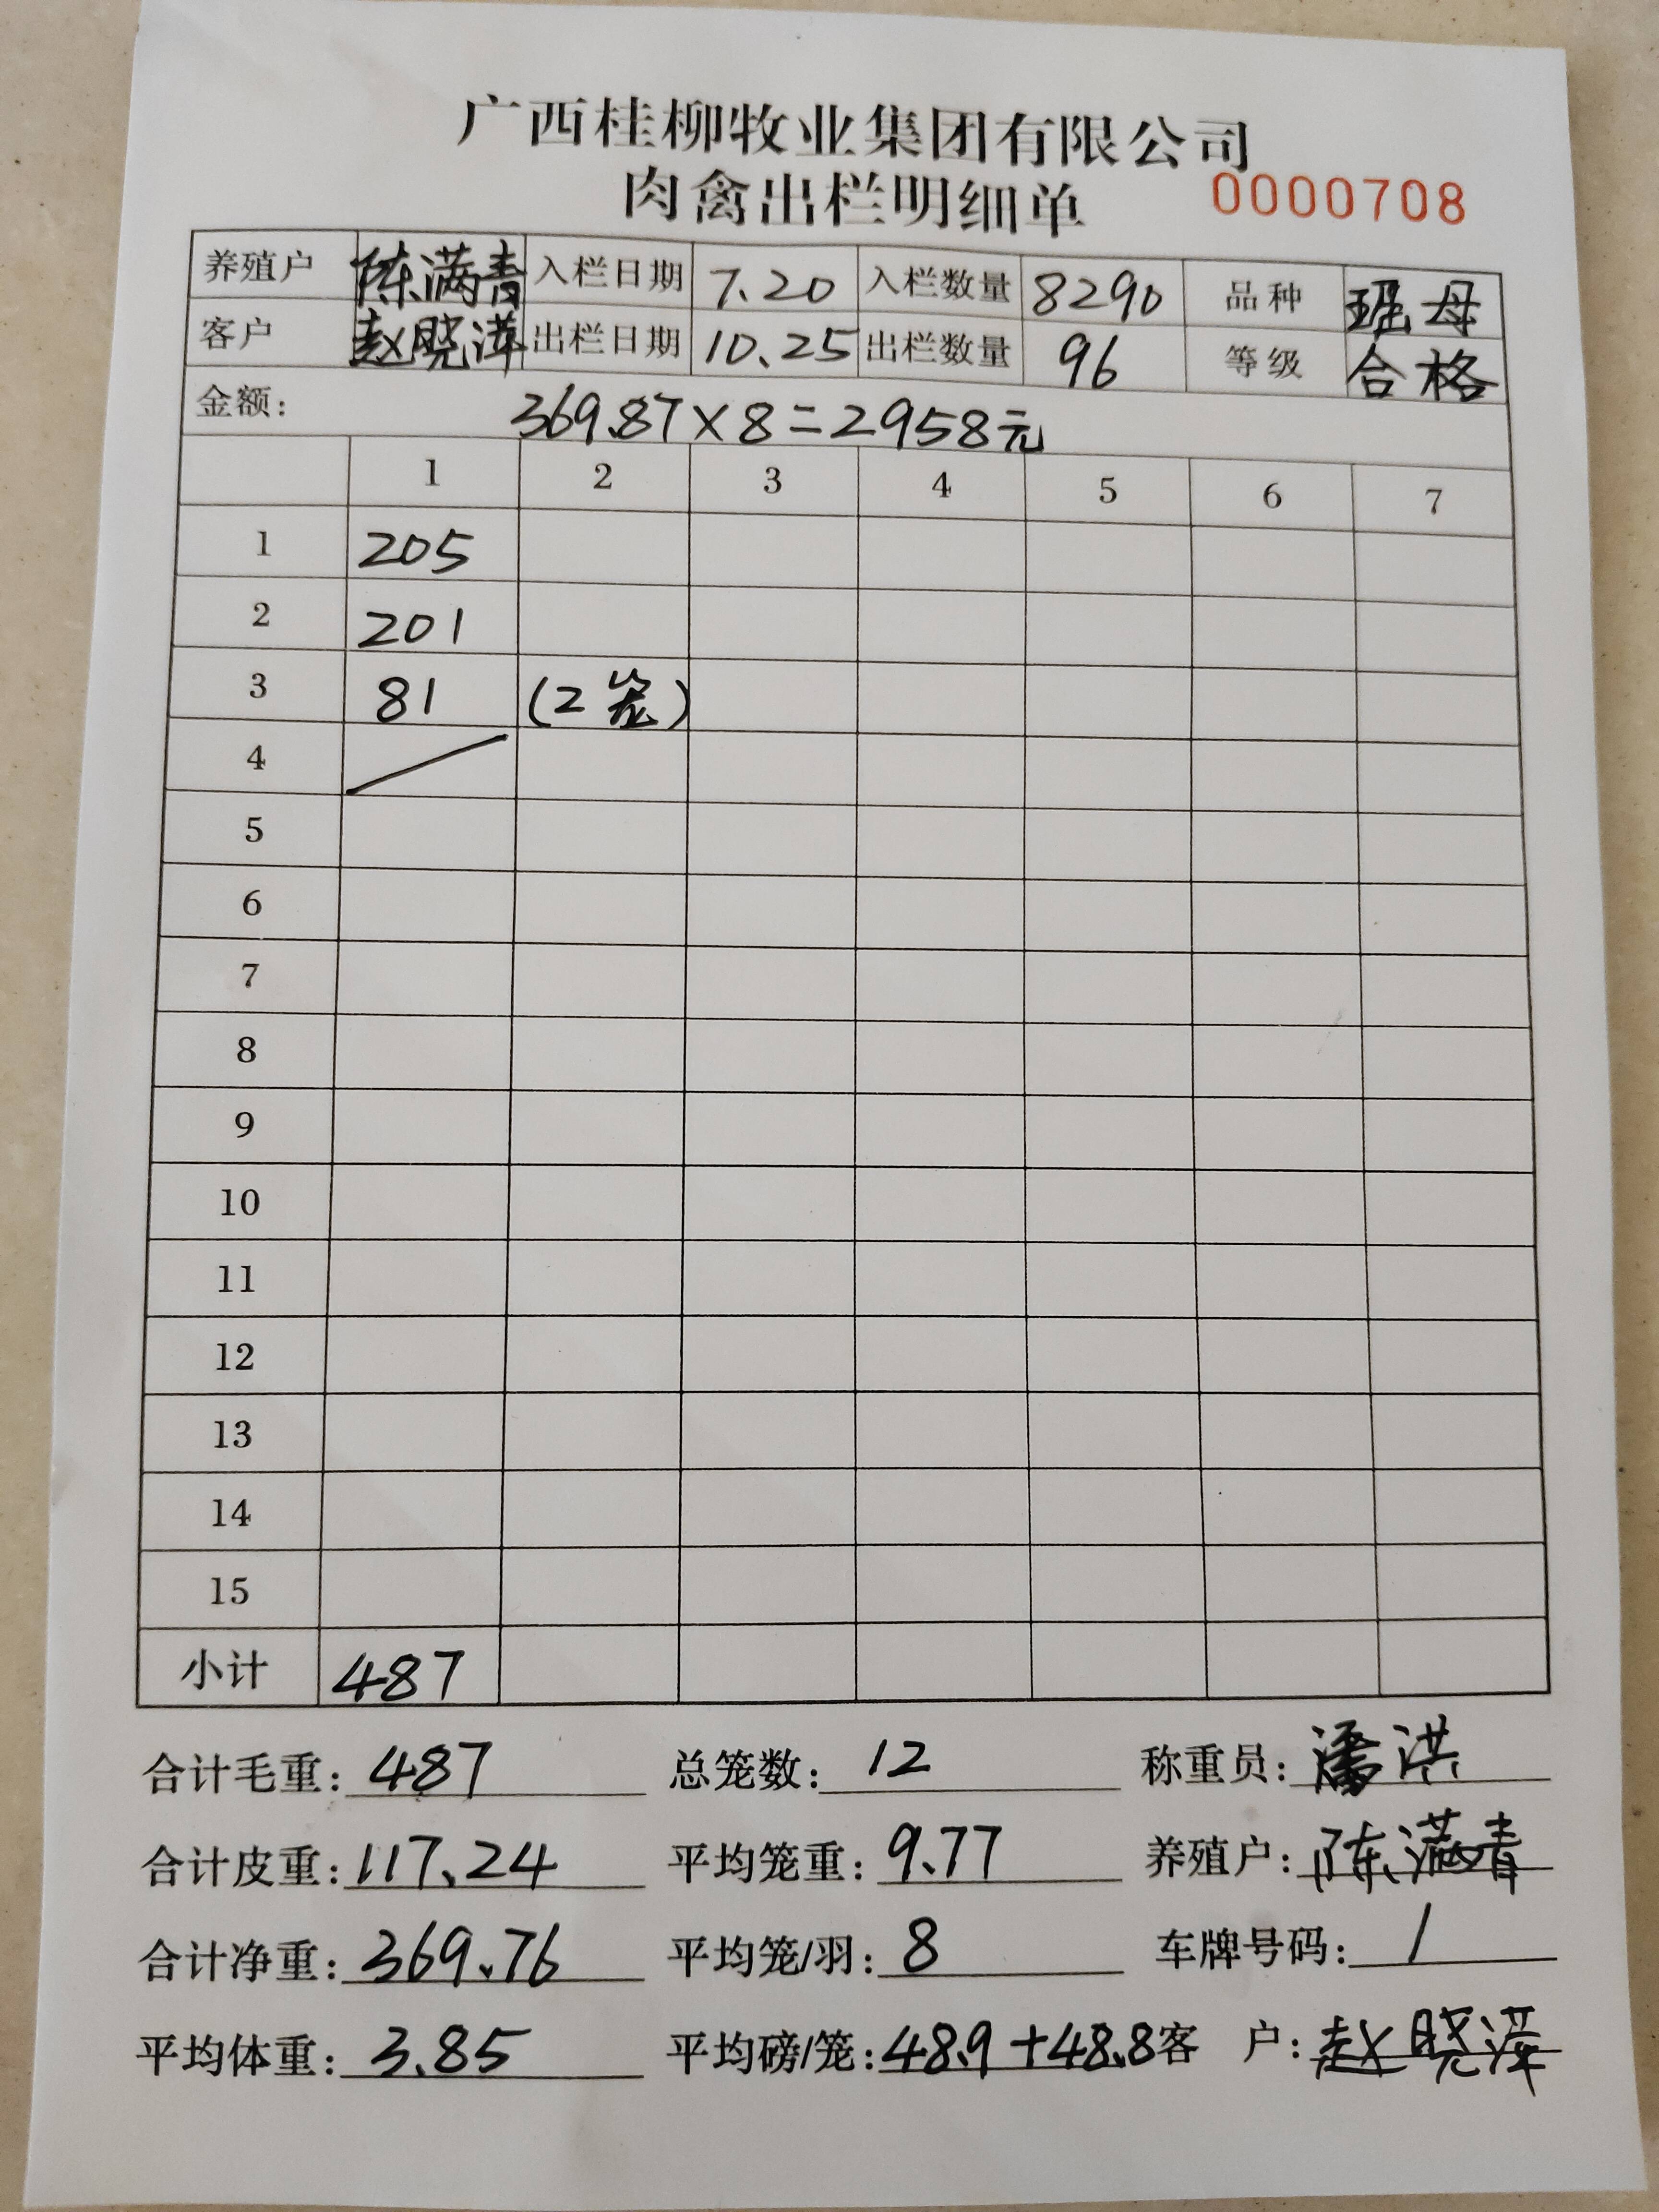 广西桂柳牧业集团有限公司
肉禽出栏明细单 0000708
养殖户 陈满青 入栏日期 7.20 入栏数量 8290 品种 班母
客户 赵晓萍 出栏日期 10.25 出栏数量 96 等级 合格
金额: 369.87×8=2958元
1 2 3 4 5 6 7
1 205
2 201
3 81 (2笼)
4
5
6
7
8
9
10
11
12
13
14
15
小计 487
合计毛重: 487 总笼数: 12 称重员: 潘洪
合计皮重: 117.24 平均笼重: 9.77 养殖户: 陈满青
合计净重: 369.76 平均笼/羽: 8 车牌号码: /
平均体重: 3.85 平均磅/笼: 48.9+48.8 客 户: 赵晓萍